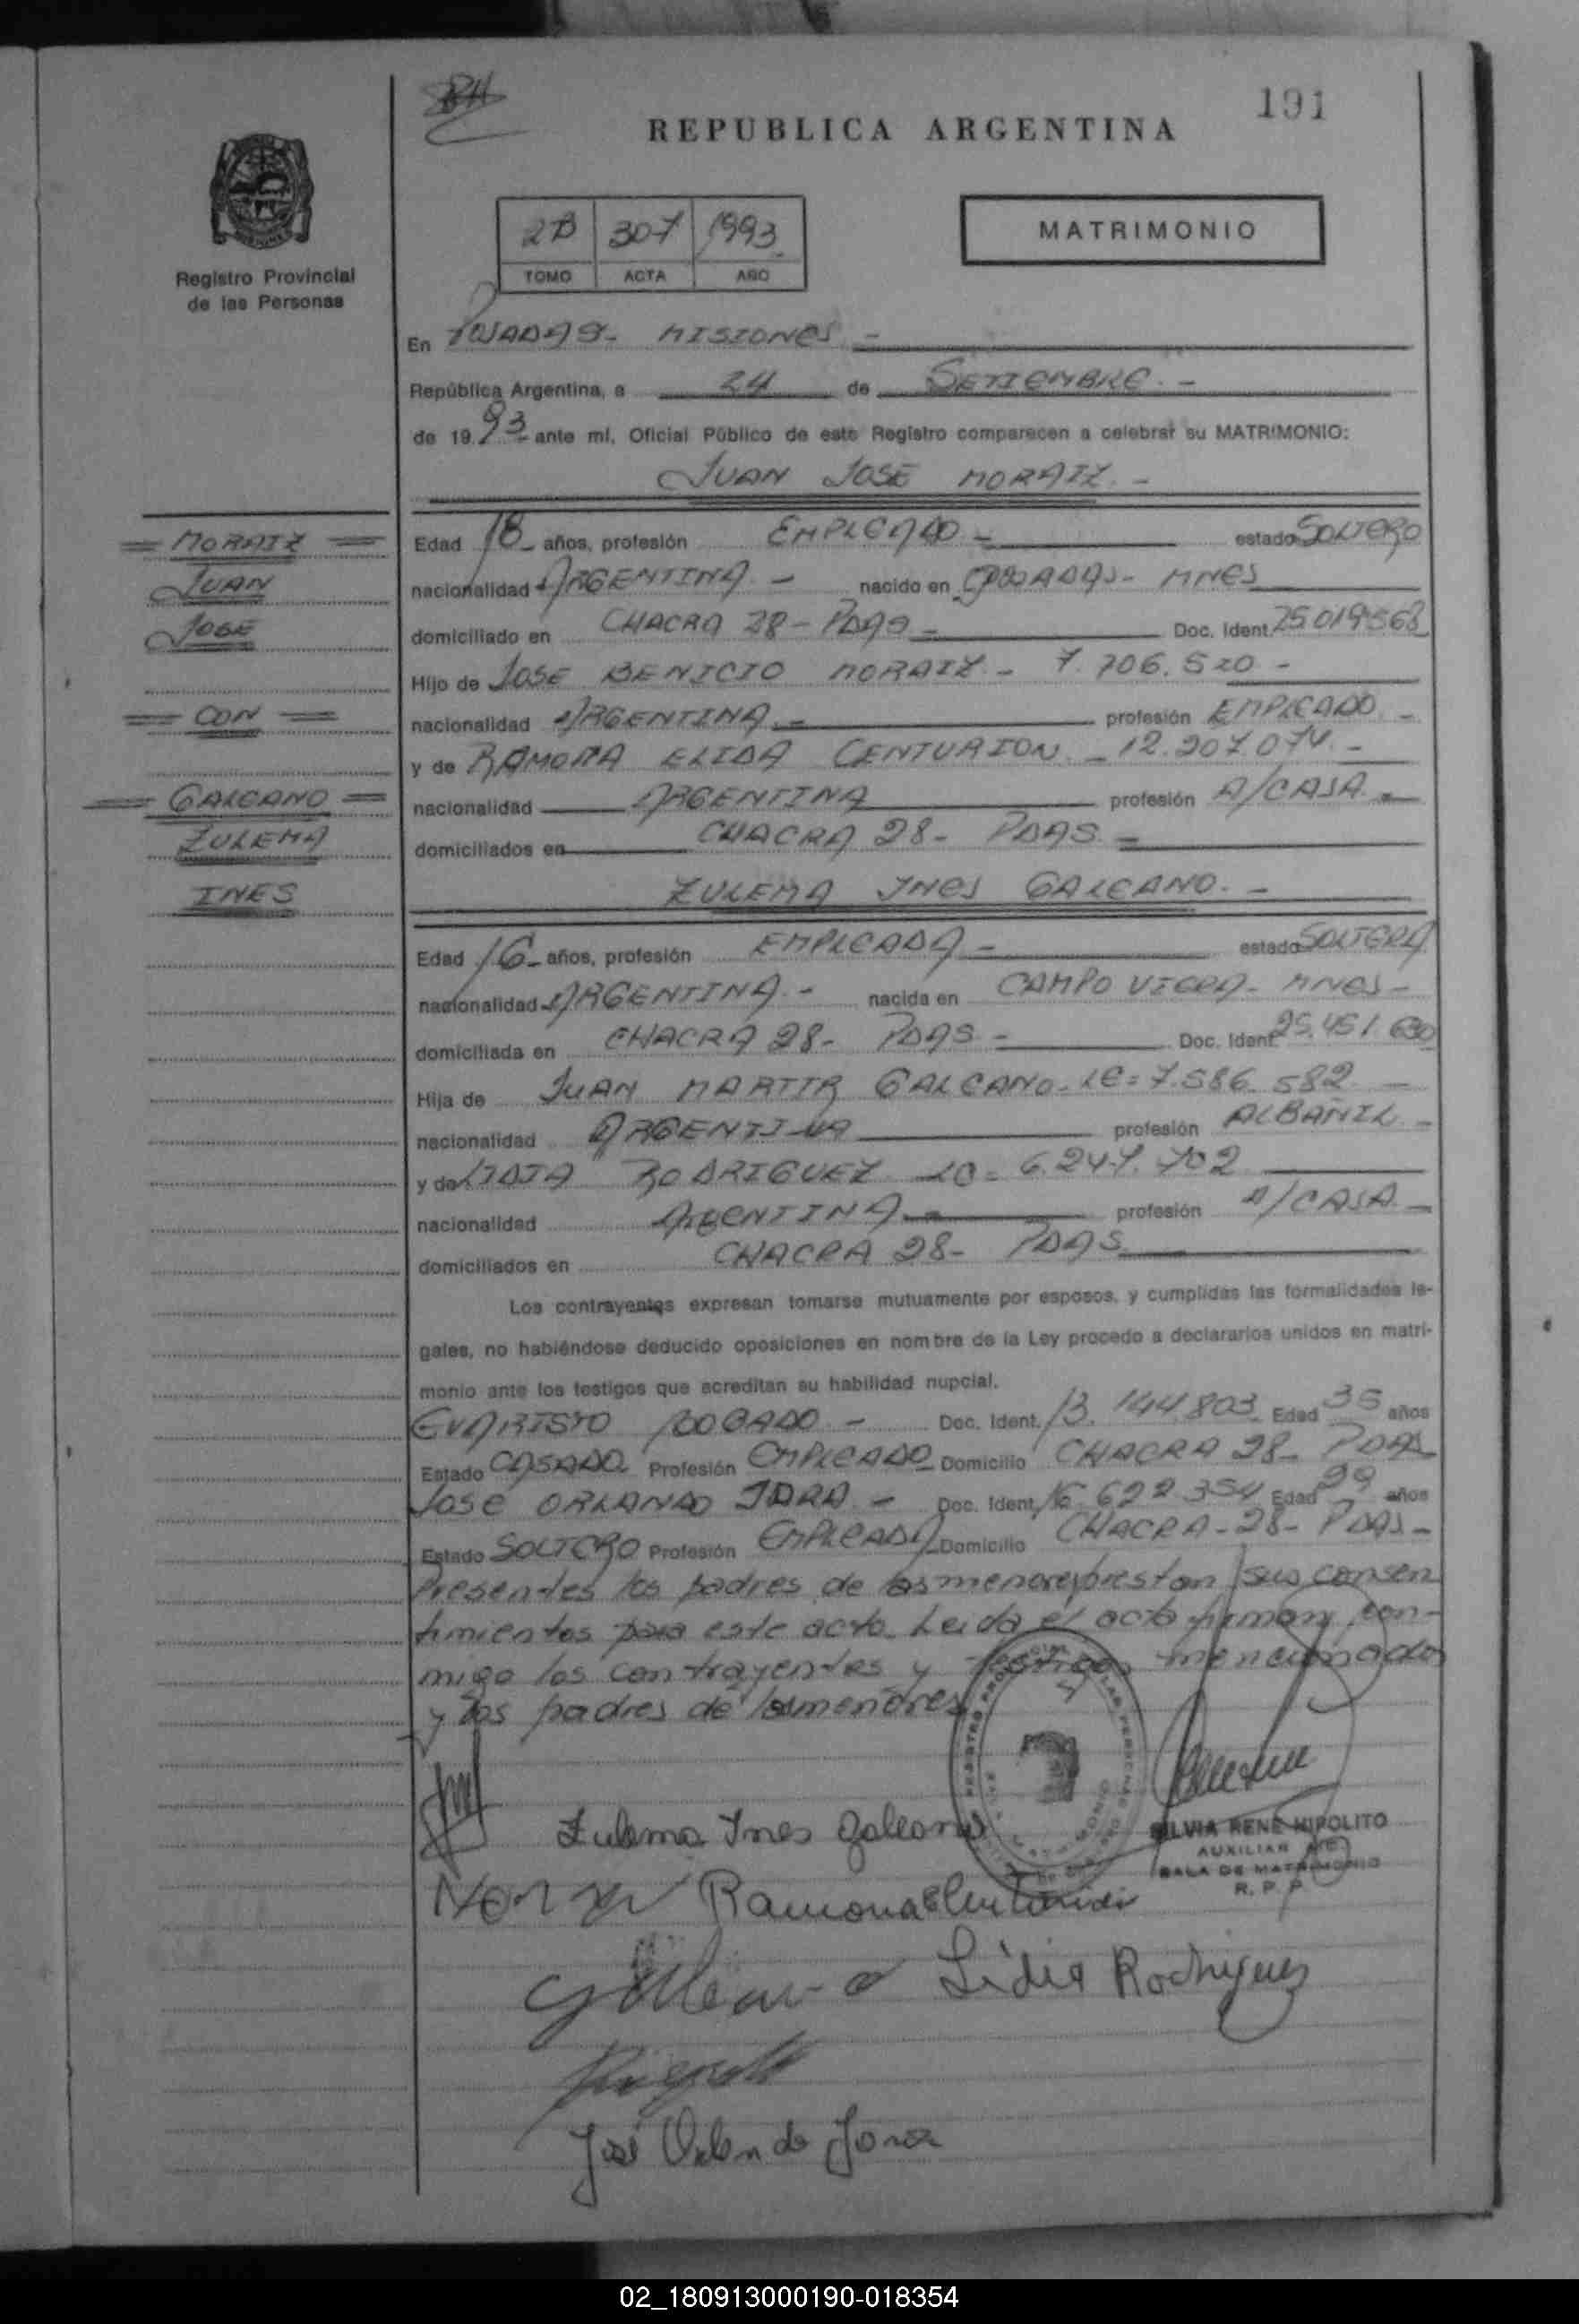 191
REPUBLICA ARGENTINA
2B 307 1993
TOMO ACTA AÑO
MATRIMONIO
Registro Provincial
de las Personas
En POSADAS - MISIONES -
República Argentina, a 24 de SETIEMBRE. -
de 19 93 ante mí, Oficial Público de este Registro comparecen a celebrar su MATRIMONIO:
JUAN JOSE MORAIZ. -
= MORAIZ =
JUAN
JOSE
= CON =
= GALEANO =
ZULEMA
INES
Edad 18 - años, profesión EMPLEADO - estado SOLTERO
nacionalidad ARGENTINA. - nacido en POSADAS - MNES
domiciliado en CHACRA 28 - PDAS - Doc. Ident. 25.019.568
Hijo de JOSE BENICIO MORAIZ. - 7.706.520 -
nacionalidad ARGENTINA. - profesión EMPLEADO -
y de RAMONA ELIDA CENTURION - 12.207.074. -
nacionalidad ARGENTINA profesión A/CASA. -
domiciliados en CHACRA 28 - PDAS. -
ZULEMA INES GALEANO. -
Edad 16 - años, profesión EMPLEADA - estado SOLTERA
nacionalidad ARGENTINA. - nacida en CAMPO VIERA - MNES -
domiciliada en CHACRA 28 - PDAS - Doc. Ident. 25.451.630
Hija de JUAN MARTIR GALEANO - LE = 7.586.582 -
nacionalidad ARGENTINA profesión ALBAÑIL -
y de LIDIA RODRIGUEZ LC = 6.247.702
nacionalidad ARGENTINA - profesión A/CASA -
domiciliados en CHACRA 28 - PDAS
Los contrayentes expresan tomarse mutuamente por esposos, y cumplidas las formalidades le-
gales, no habiéndose deducido oposiciones en nombre de la Ley procedo a declararlos unidos en matri-
monio ante los testigos que acreditan su habilidad nupcial.
EVARISTO BOGADO - Doc. Ident. 13.144.803 Edad 35 años
Estado CASADO Profesión EMPLEADO - Domicilio CHACRA 28 - PDAS
JOSE ORLANDO JARA - Doc. Ident. 16.622.354 Edad 29 años
Estado SOLTERO Profesión EMPLEADO Domicilio CHACRA - 28 - PDAS -
Presentes los padres de los menores prestan sus consen
timientos para este acto. Leida el acta firman con-
migo los contrayentes y testigos mencionados
y los padres de los menores
Zulema Ines Galeano
SILVIA RENE HIPOLITO
AUXILIAR
SALA DE MATRIMONIO
R. P. P.
Ramona
Galeano Lidia Rodriguez
José Orlando Jara
02_180913000190-018354